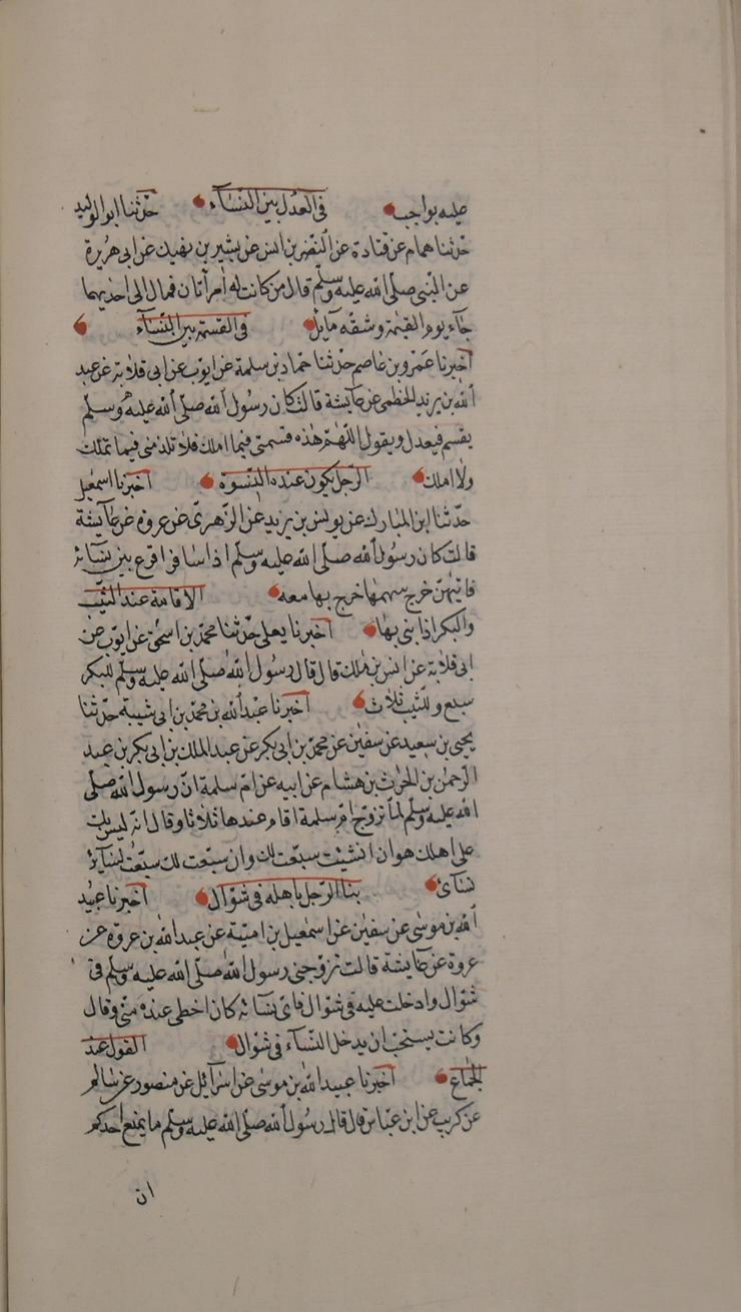 عليه بواجب في العدل بين النساء حدثنا ابو الوليد
حدثنا همام عن قتادة عن النضر بن انس عن بشير بن نهيك عن ابي هريرة
عن النبي صلى الله عليه وسلم قال من كانت له امرأتان فمال الى احديهما
جاء يوم القيمة وشقه مايل في القسمة بين النساء
اخبرنا عمرو بن عاصم حدثنا حماد بن سلمة عن ايوب عن ابي قلابة عن عبد
الله بن يزيد الخطمي عن عايشة قالت كان رسول الله صلى الله عليه وسلم
يقسم فيعدل ويقول اللهم هذه قسمتي فيما املك فلا تلمني فيما تملك
ولا املك الرجل يكون عنده النسوة اخبرنا اسمعيل
حدثنا ابن المبارك عن يونس بن يزيد عن الزهري عن عروة عن عايشة
قالت كان رسول الله صلى الله عليه وسلم اذا سافر اقرع بين نسائه
فايتهن خرج سهمها خرج بها معه الاقامة عند الثيب
والبكر اذا بنى بها اخبرنا يعلى حدثنا محمد بن اسحق عن ايوب عن
ابي قلابة عن انس بن ملك قال قال رسول الله صلى الله عليه وسلم للبكر
سبع وللثيب ثلاث اخبرنا عبد الله بن محمد بن ابي شيبة حدثنا
يحيى بن سعيد عن سفين عن محمد بن ابي بكر عن عبد الملك بن ابي بكر بن عبد
الرحمن بن الحرث بن هشام عن ابيه عن ام سلمة ان رسول الله صلى
الله عليه وسلم لما تزوج ام سلمة اقام عندها ثلاثا وقال انه ليس بك
على اهلك هوان ان شئت سبعت لك وان سبعت لك سبعت لسائر
نسائي بنا الرجل باهله في شوال اخبرنا عبيد
الله بن موسى عن سفين عن اسمعيل بن امية عن عبد الله بن عروة عن
عروة عن عايشة قالت تزوجني رسول الله صلى الله عليه وسلم في
شوال وادخلت عليه في شوال فاي نسائه كان احظى عنده مني وقال
وكانت يستحب ان يدخل النساء في شوال القول عند
الجماع اخبرنا عبيد الله بن موسى عن اسرآئل عن منصور عن سالم
عن كريب عن ابن عباس قال قال رسول الله صلى الله عليه وسلم ما يمنع احدكم
ان